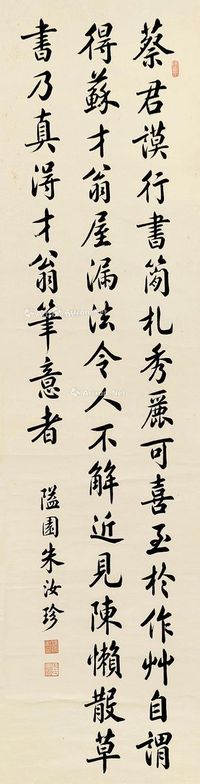 蔡君謨行書簡札秀麗可喜至於作艸自謂
得蘇才翁屋漏法令人不解近見陳懶散草
書乃真得才翁筆意者
隘園朱汝珍